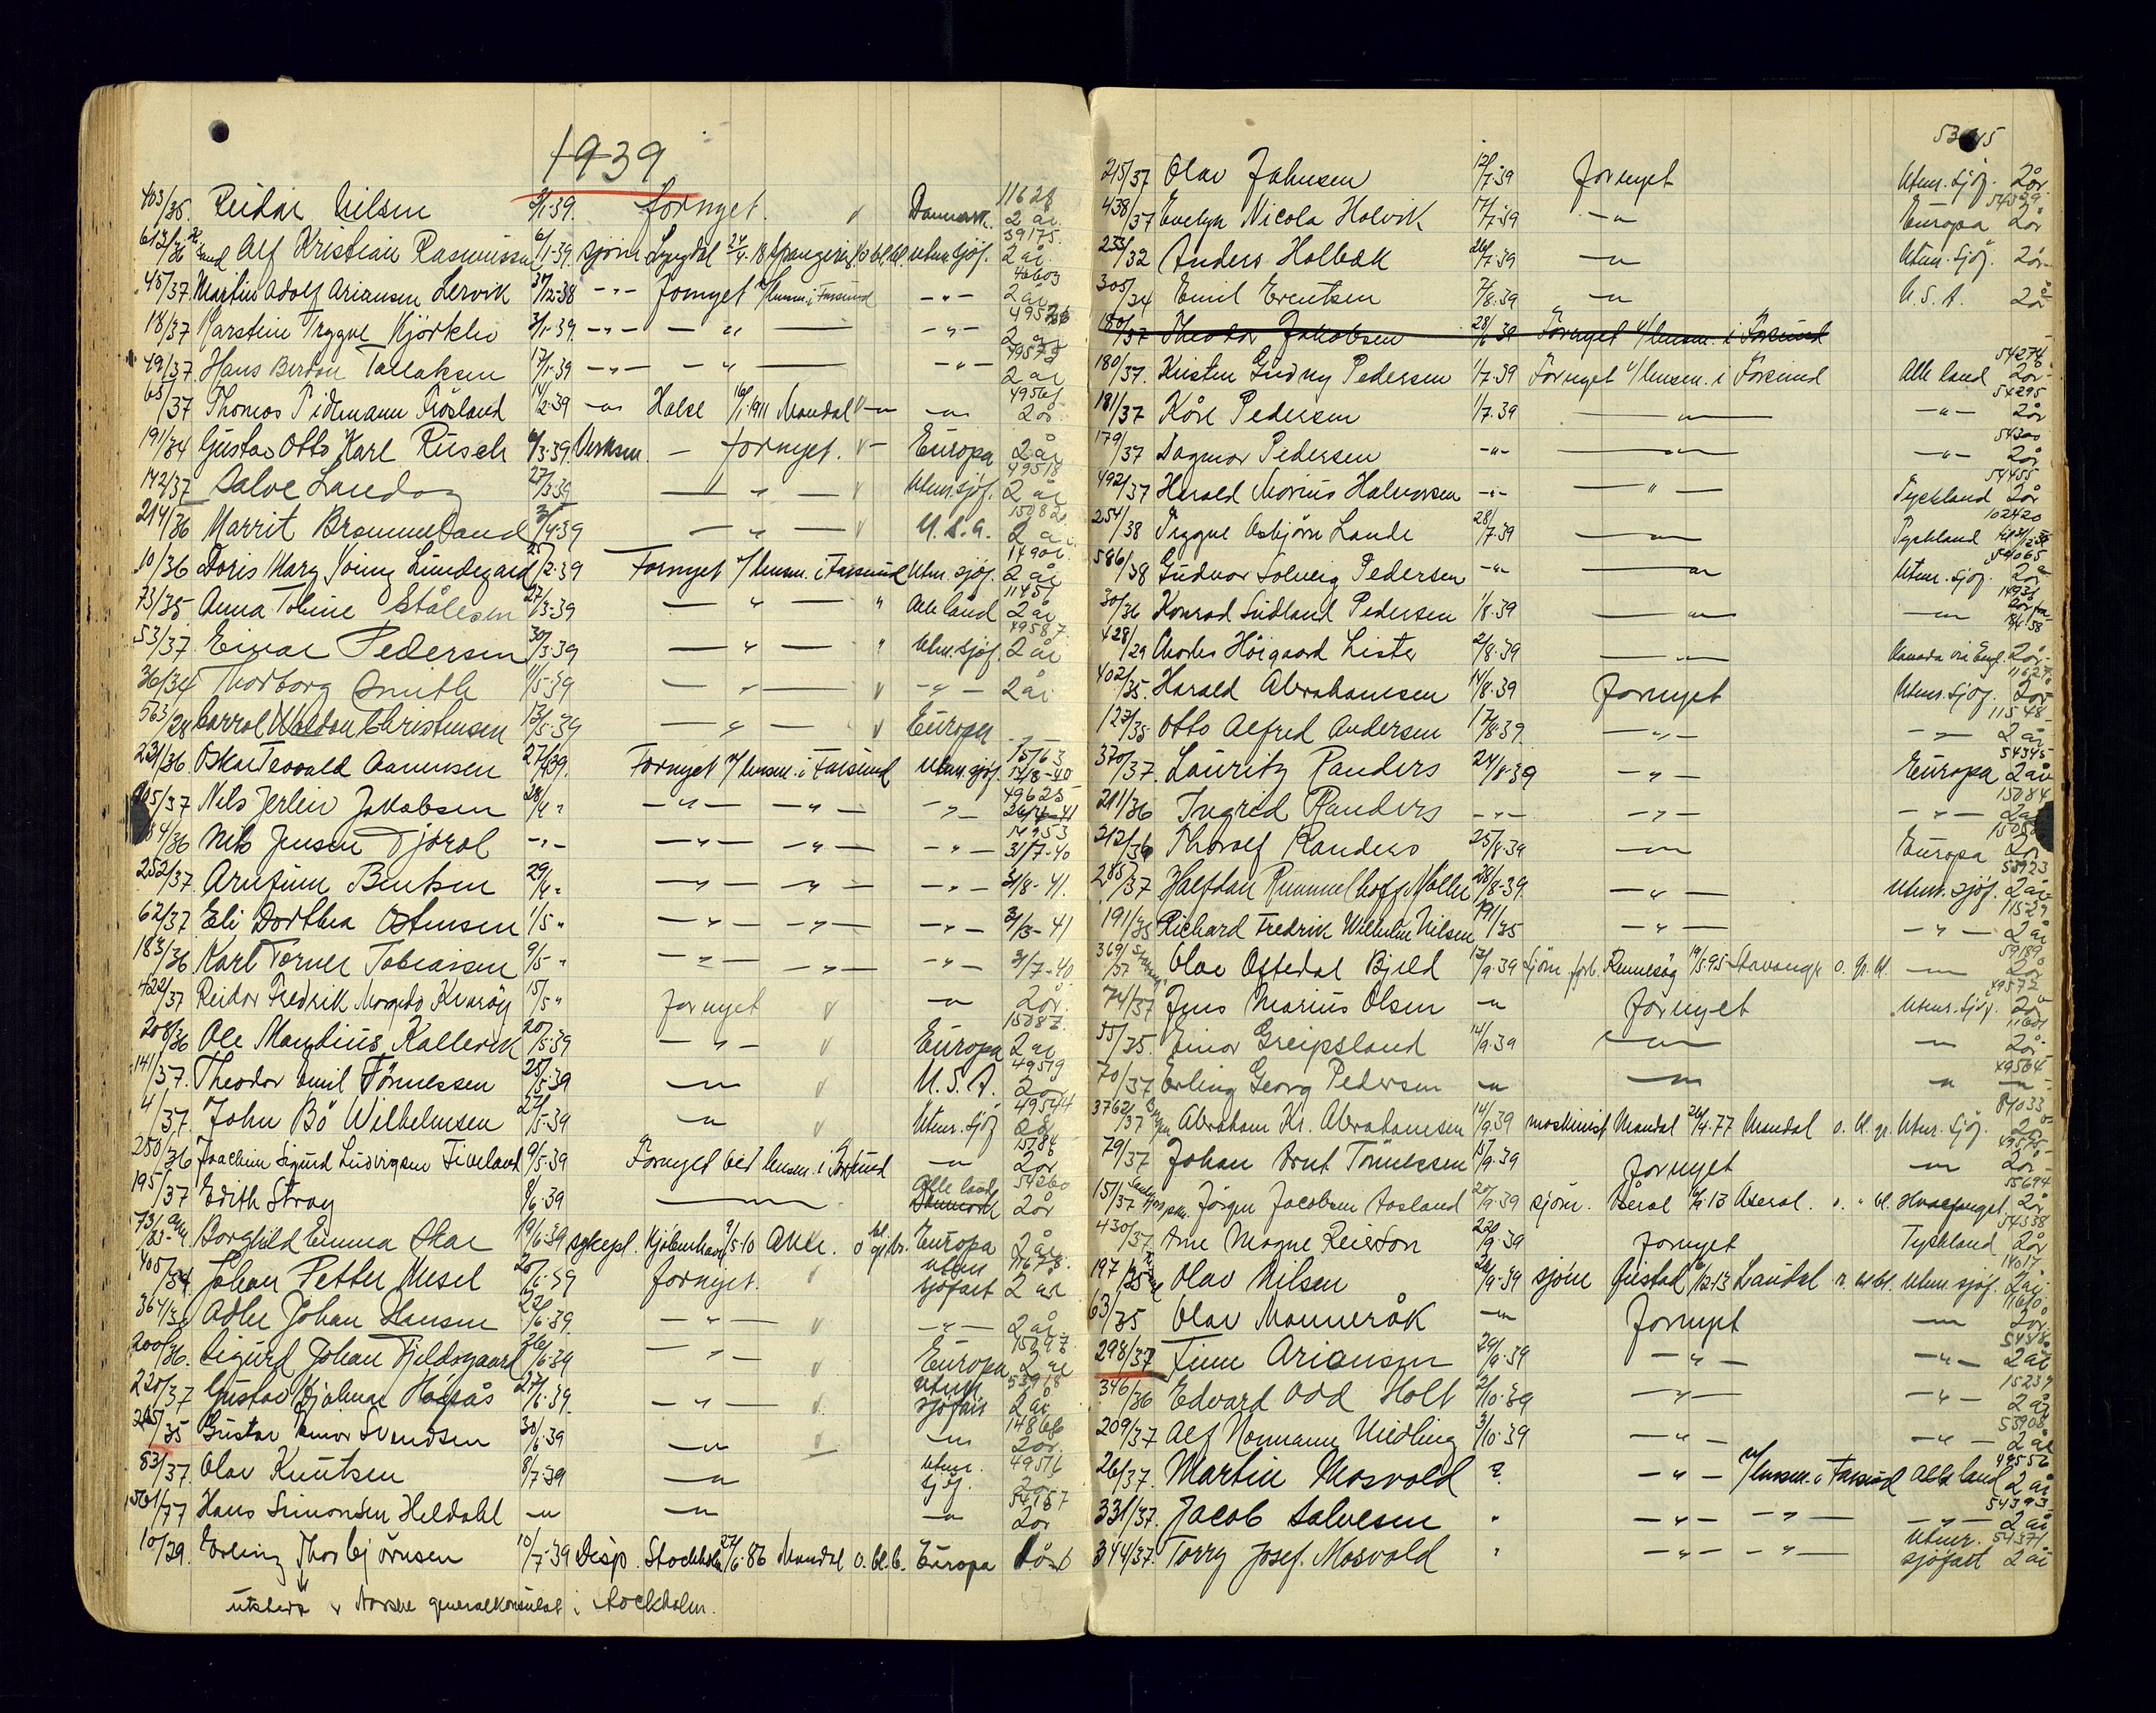 1939
403/35. Reidar Nilsen 3/1.39. fornyet. v Danmark. 11628 2 år
613/36 Alf Kristian Rasmussen 6/1.39. sjöm Lyngdal 24/4.18 Spangereid o bl. bl. uten sjöf. 39175. 2 år.
45/37. Martin Adolf Ariansen Lervik 30/12-38 -"- Fornyet v/ lensm. i Farsund -"- 46603 2 år
18/37 Karstein Trygve Kjörkleiv 3/1-39. -"- - " - -"- 49526 2 år
49/37. Hans Berdon Tallaksen 17/1-39 -"- - " - -"- 49573 2 år
65/37 Thomas Tidemann Frösland 14/2.39 -"- Halse 16/1.1911 Mandal v-" -"- 49561 2 år
191/34 Gustav Otto Karl Rüsch 6/3.39. Verksm. - fornyet. v- Europa 2 år
172/37 Salve Landøy 27/3.39 - " - v Uten. sjöf. 49518 2 år
214/36 Marrit Brommeland 3/4.39 - " - v U.S.A. 15082 2 år
10/36 Doris Mary Young Lundegård 25/2.39 Fornyet v/ lensm. i Farsund Uten. sjöf. 14906 2 år
73/35. Anna Toline Stålesen 27/3-39 - " - " Alle land 11451 2 år
53/37. Einar Pedersen 30/3.39 - " - " Uten. sjöf. 49587 2 år
36/34 Thorborg Smith 11/5-39 - " - v -"- 2 år
563/28 Carrol Waldon Christensen 13/5-39 - " - v Europa - " -
231/36. Oskar Tesvald Aanensen 27/4.39. Fornyet v/ lensm. i Farsund Uten. sjöf. 15763 14/8-40
205/37 Nils Jerlein Jakobsen 28/4 " -"- -"- -"- 49625 26/4-41
184/36 Nils Jensen Tjörol -"- -"- -"- -"- 14953 31/7-40
252/37. Arnfinn Bentsen 29/4 " -"- -"- -"- 3/8-41.
62/37 Eli Dorthea Ostensen 1/5 " -"- -"- -"- 3/3-41
183/36 Karl Torner Tobiassen 9/5 " -"- -"- -"- 3/7-40
422/37 Reidar Fredrik Kvarøy 15/5 " fornyet v -"- 2 år
208/36 Ole Mangdius Kallevik 20/5.39 -"- v Europa 15087 2 år
141/37. Theodor Emil Tönnessen 25/5.39 -"- v U.S.A. 49519 2 år
4/37. John Bö Wilhelmsen 27/5-39 -"- v Uten. sjöf 49544 2 år
250/36 Joachim Sigurd Ludvigsen Fiveland 9/5-39 Fornyet ved lensm. i Farsund -"- 15784 2 år
195/37 Edith Stray 8/6.39 -"- Alle land Danmark 54260 2 år
73/33 Borghild Emma Skar 19/6.39 sykepl. Kjöbenhavn 9/5.10 o bl. gr. br. Europa 2 år
405/34 Johan Petter Mesel 20/6.39 fornyet. v uten sjöfart 11673. 2 år
364/3 Adler Johan Hansen 22/6.39. -"- v -"- 2 år.
200/36. Sigurd Johan Fjeldsgaard 26/6.39 -"- v Europa 15097 2 år
220/37 Gustav Hjalmar Högsås 27/6.39. -"- v utenr. sjöfart 53918 2 år
245/35 Gustav Einar Svendsen 30/6.39 -"- v -"- 14866 2 år.
83/37. Olav Knutsen 8/7-39 -"- utenr. sjöf. 49516 2 år
Hans Simonsen Heldahl -"- -"- -"- 54187 2 år
10/39. Erling Thorbjörnsen 10/7-39 Disp. Stockholm 27/6.86 Mandal o. bl. b. Europa
utstedt v Norske generalkonsulat i Stockholm.
215/37 Olav Johnsen 12/7.39 fornyet Utenr. sjöf. 2 år.
438/37 Evelyn Nicola Holvik 17/7.39 -"- Europa 54399 2 år
233/32 Anders Holbæk 26/7.39 -"- Utenr. sjöf. 2 år
305/34 Emil Erentsen 7/8.39 -"- U.S.A. 2 år
180/37 Theodor Jakobsen 28/6 39 Fornyet v/ lensm. i Farsund
180/37. Kristen Gudny Pedersen 1/7.39 Fornyet v/ lensm. i Farsund Alle land 54274 2 år
181/37 Kåre Pedersen 1/7.39 -"- -"- 54295 2 år
179/37 Dagmar Pedersen -"- -"- -"- 54300 2 år
492/37 Harald Marius Halvorsen -"- -"- Tyskland 54455 2 år
254/38 Trygve Asbjörn Lande 28/7.39 -"- Tyskland 102420
586/38 Gudvor Solveig Pedersen -"- -"- Utenr. sjöf. 54065 2 år
30/36 Konrad Sudland Pedersen 1/8.39 -"- -"- 14936
428/29 Charles Höigaard Lister 2/8.39 -"- Kanada via Engl. 2 år
402/35. Harald Abrahamsen 14/8.39 fornyet Utenr. sjöf. 11627 2 år
127/35 Otto Alfred Andersen 17/8.39. -"- -"- 11548 2 år
370/37. Lauritz Randers 24/8.39 -"- Europa 54345 2 år
211/36 Ingrid Randers -"- -"- -"- 15084 2 år
212/36 Thoralf Randers 25/8.39 -"- Europa 2 år
285/37 Halfdan Rummelhoff Möller 28/8-39. -"- Utenr. sjöf. 53923 2 år
191/35 Richard Fredrik Wilhelm Nilsen 191/35 -"- -"- 11529 2 år
369/37 Olav Oftedal Bjeld 12/9.39 Sjöm. förb. Rennesøy 19/5.95 Stavanger o. gr. bl. -"- 59189 2 år
74/37 Jens Marius Olsen -"- fornyet Utenr. sjöf. 49572 2 år
55/35. Einar Greipsland 14/9.39 -"- -"- 2 år
70/37 Erling Georg Pedersen -"- -"- -"- 49564 -"-
3762/37 Abraham Kr. Abrahamsen 14/9.39 maskinist Mandal 26/4.77 Mandal o. bl. gr. Utenr. sjöf. 84033 2 år
79/37 Johan Arnt Tönnessen 15/9.39 fornyet -"- 49575 2 år
15/37 Jörgen Jacobsen Aasland 20/9.39 sjöm. Åseral 6/9.13 Aseral. o. " bl. Hvalfanget 55694 2 år
430/37. Arne Magne Reierson 22/9.39 fornyet Tyskland 54338 2 år
197/35 Olav Nilsen 26/9.39 sjöm Øistad 6/12.13 Laudal o. bl bl. Utenr. sjöf. 14017 2 år.
63/35 Olav Monneråk -"- fornyet -"- 2 år
298/37 Finn Ariansen 29/9.39 -"- -"- 2 år
346/36 Edvard Odd Holt 2/10.39 -"- -"- 15239 2 år
209/37 Alf Normann Uredling 3/10-39 -"- -"- 53908 2 år
26/37. Martin Mosvold ? -"- v/ lensm. i Farsund Alle land 49556 2 år
331/37. Jacob Salvesen " -"- -"- -"- 54393 2 år
344/37. Torry Josef. Mosvold " -"- -"- Utenr. sjöfart 54371 2 år